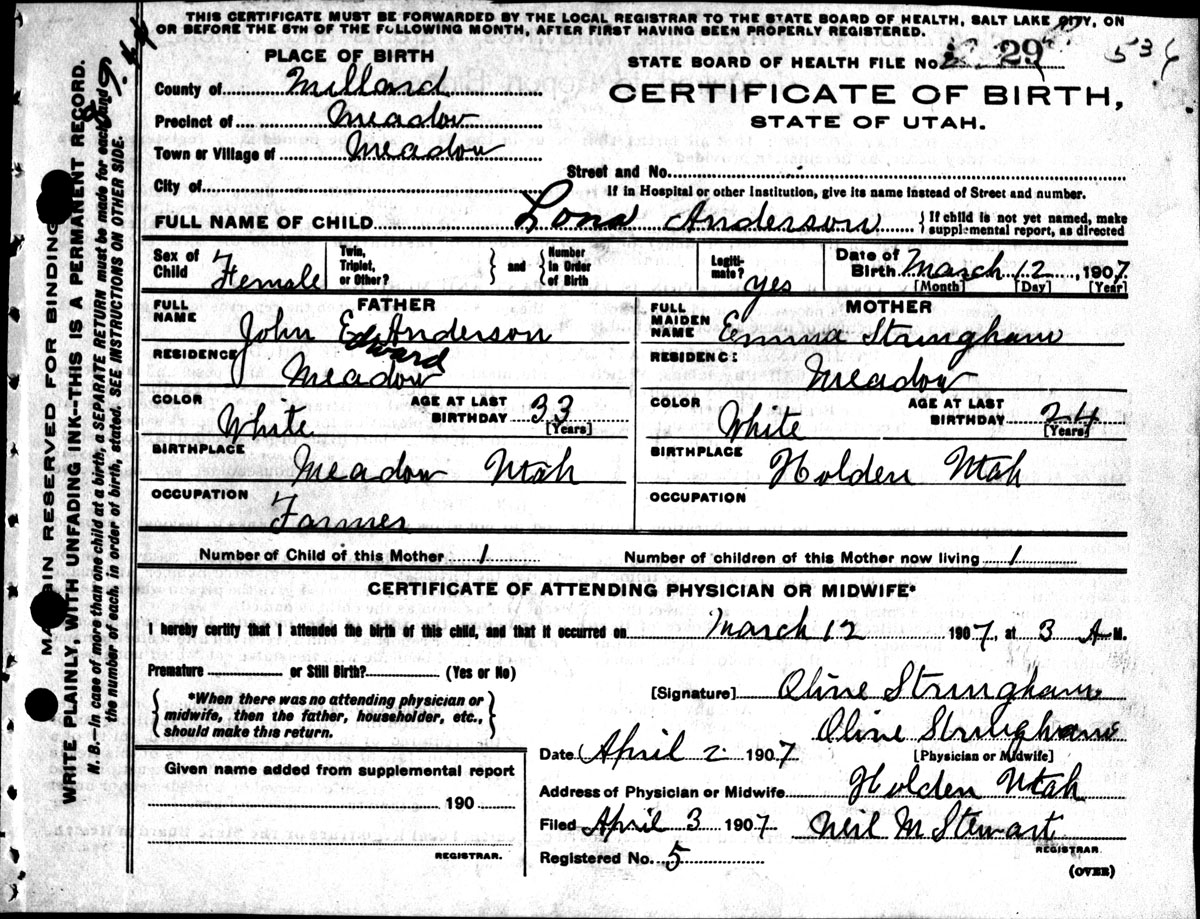 THIS CERTIFICATE MUST BE FORWARDED BY THE LOCAL REGISTRAR TO THE STATE BOARD OF HEALTH, SALT LAKE CITY, ON
OR BEFORE THE 5TH OF THE FOLLOWING MONTH, AFTER FIRST HAVING BEEN PROPERLY REGISTERED.
PLACE OF BIRTH
STATE BOARD OF HEALTH FILE No. 29
536
County of Millard
CERTIFICATE OF BIRTH,
STATE OF UTAH.
Precinct of Meadow
Town or Village of Meadow
Street and No.
City of
If in Hospital or other Institution, give its name instead of Street and number.
FULL NAME OF CHILD Lona Anderson { If child is not yet named, make
supplemental report, as directed
Sex of Child Female
Twin, Triplet, or Other? } and { Number in Order of Birth
Legiti-mate? yes
Date of Birth March 12, 1907
[Month] [Day] [Year]
FATHER
FULL NAME John Ed Anderson
Edward
RESIDENCE Meadow
COLOR White AGE AT LAST BIRTHDAY 33
[Years]
BIRTHPLACE Meadow Utah
OCCUPATION Farmer
MOTHER
FULL MAIDEN NAME Emma Stringham
RESIDENCE Meadow
COLOR White AGE AT LAST BIRTHDAY 24
[Years]
BIRTHPLACE Holden Utah
OCCUPATION
Number of Child of this Mother 1 Number of children of this Mother now living 1
CERTIFICATE OF ATTENDING PHYSICIAN OR MIDWIFE*
I hereby certify that I attended the birth of this child, and that it occurred on March 12 1907, at 3 A M.
Premature or Still Birth? (Yes or No)
{ *When there was no attending physician or
midwife, then the father, householder, etc.,
should make this return. }
[Signature] Oline Stringham
Oline Stringham
Date April 2 1907 [Physician or Midwife]
Address of Physician or Midwife Holden Utah
Filed April 3 1907 Neil M Stewart
REGISTRAR.
Registered No. 5
(OVER)
Given name added from supplemental report
190
REGISTRAR.
MARGIN RESERVED FOR BINDING
WRITE PLAINLY, WITH UNFADING INK--THIS IS A PERMANENT RECORD.
N. B.—In case of more than one child at a birth, a SEPARATE RETURN must be made for each, and
the number of each, in order of birth, stated. SEE INSTRUCTIONS ON OTHER SIDE.